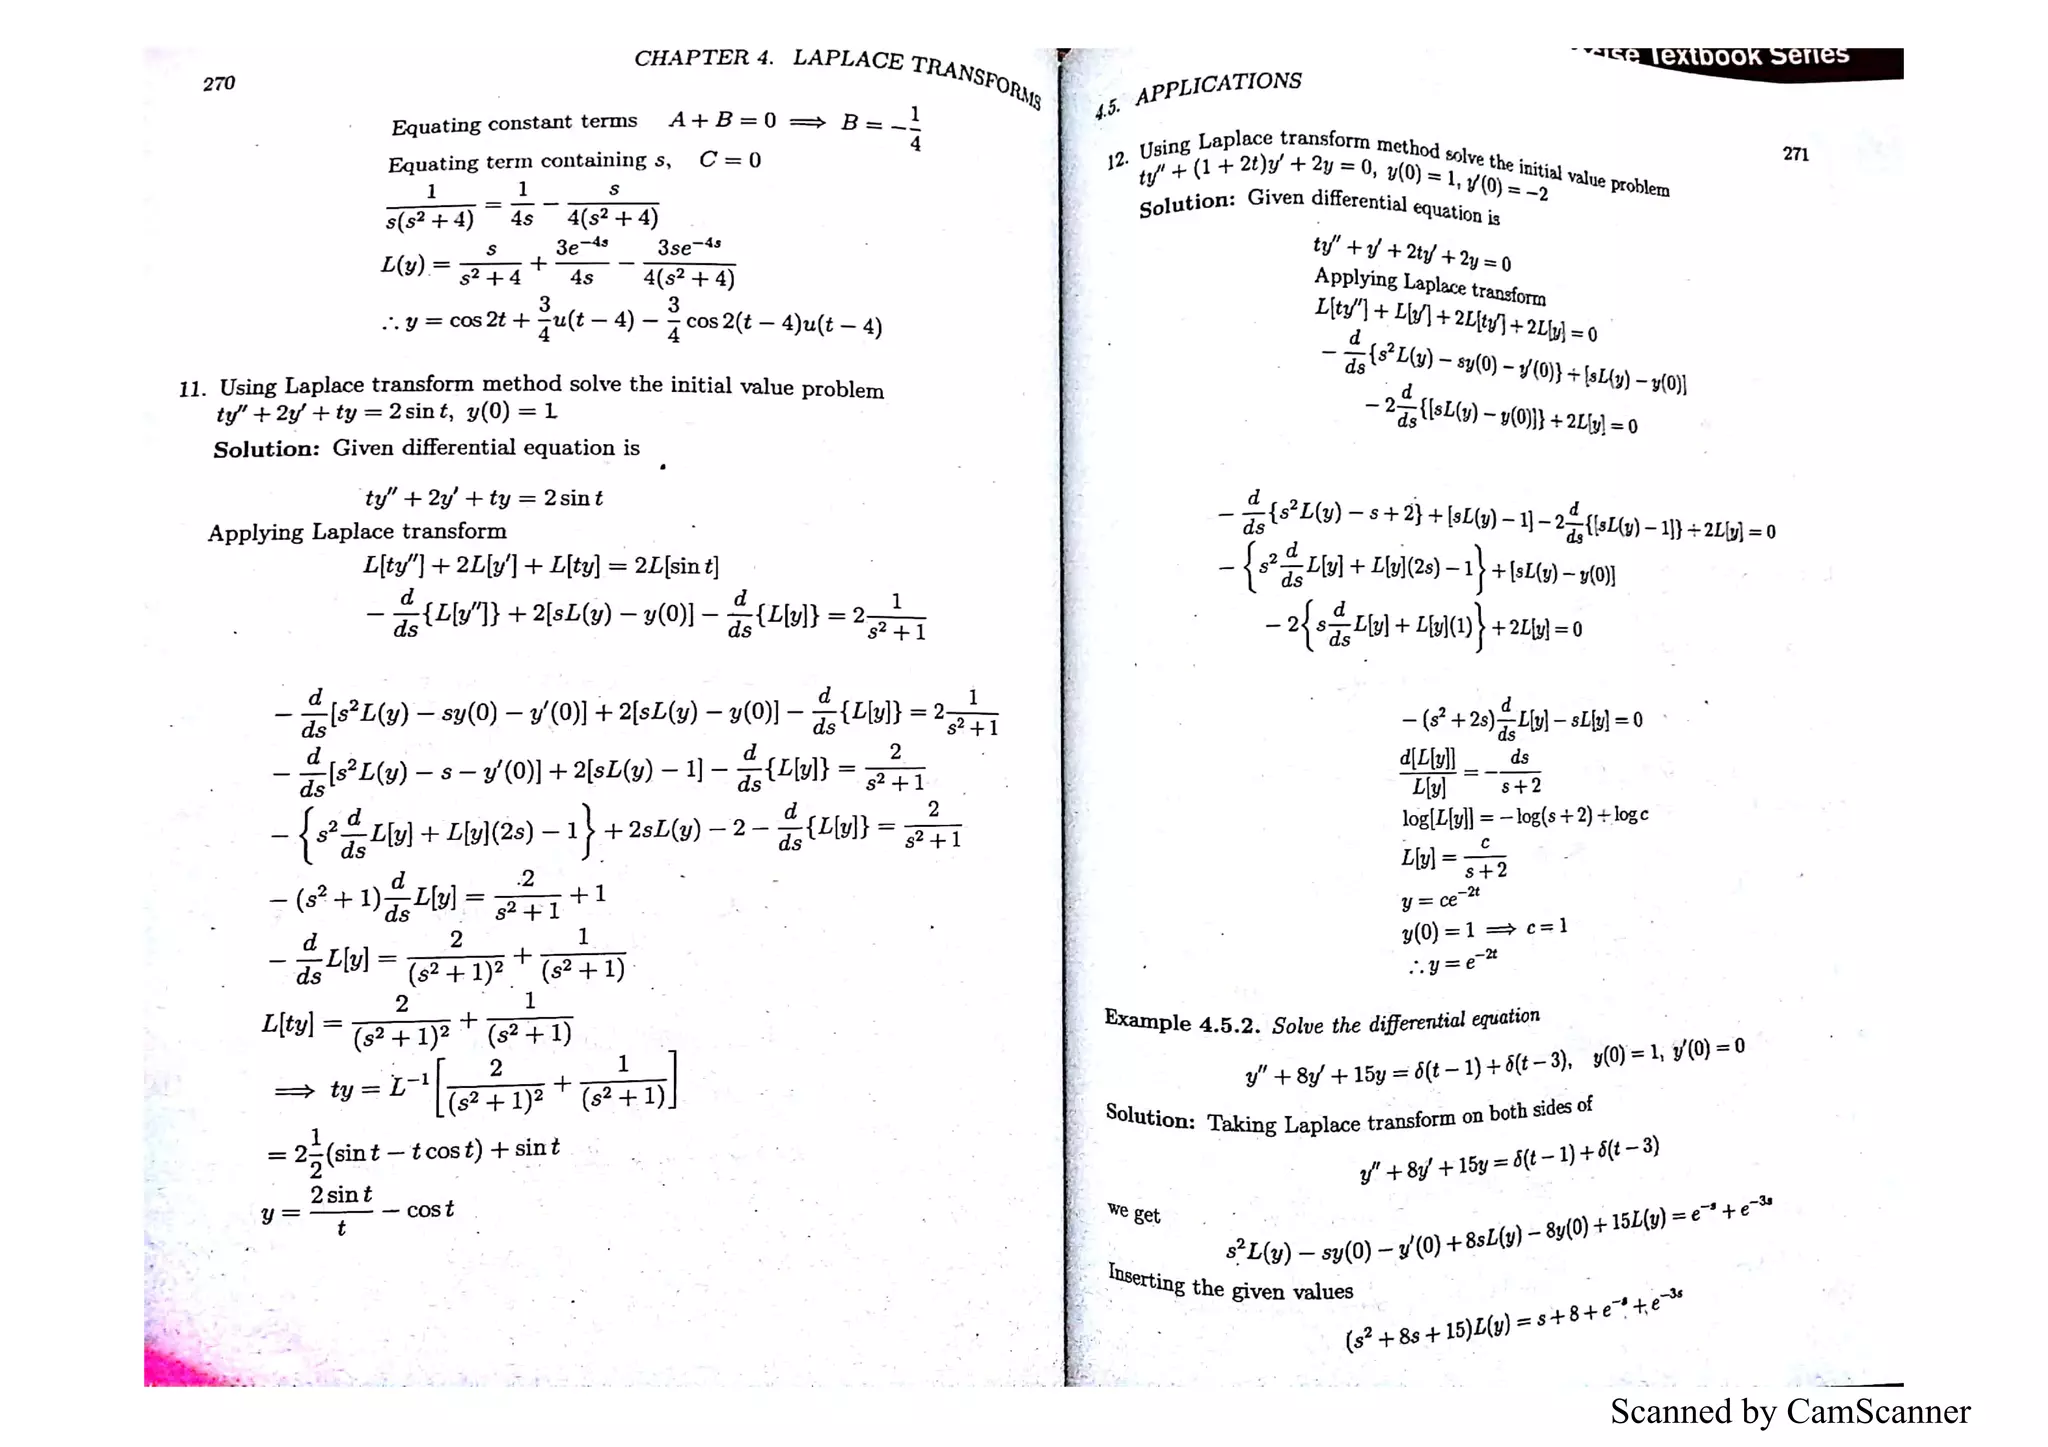 270
CHAPTER 4. LAPLACE TRANSFORMS
Equating constant terms A + B = 0 ⟹ B = −1/4
Equating term containing s, C = 0
1/(s(s² + 4)) = 1/(4s) − s/(4(s² + 4))
L(y) = s/(s² + 4) + 3e⁻⁴ˢ/(4s) − 3se⁻⁴ˢ/(4(s² + 4))
∴ y = cos 2t + (3/4)u(t − 4) − (3/4) cos 2(t − 4)u(t − 4)
11. Using Laplace transform method solve the initial value problem
ty″ + 2y′ + ty = 2 sin t, y(0) = 1
Solution: Given differential equation is
ty″ + 2y′ + ty = 2 sin t
Applying Laplace transform
L[ty″] + 2L[y′] + L[ty] = 2L[sin t]
− d/ds{L[y″]} + 2[sL(y) − y(0)] − d/ds{L[y]} = 2 1/(s² + 1)
− d/ds[s²L(y) − sy(0) − y′(0)] + 2[sL(y) − y(0)] − d/ds{L[y]} = 2 1/(s² + 1)
− d/ds[s²L(y) − s − y′(0)] + 2[sL(y) − 1] − d/ds{L[y]} = 2/(s² + 1)
− {s² d/ds L[y] + L[y](2s) − 1} + 2sL(y) − 2 − d/ds{L[y]} = 2/(s² + 1)
− (s² + 1) d/ds L[y] = 2/(s² + 1) + 1
− d/ds L[y] = 2/(s² + 1)² + 1/(s² + 1)
L[ty] = 2/(s² + 1)² + 1/(s² + 1)
⟹ ty = L⁻¹[2/(s² + 1)² + 1/(s² + 1)]
= 2 1/2 (sin t − t cos t) + sin t
y = 2 sin t/t − cos t
Textbook Series
4.5. APPLICATIONS
271
12. Using Laplace transform method solve the initial value problem
ty″ + (1 + 2t)y′ + 2y = 0, y(0) = 1, y′(0) = −2
Solution: Given differential equation is
ty″ + y′ + 2ty′ + 2y = 0
Applying Laplace transform
L[ty″] + L[y′] + 2L[ty′] + 2L[y] = 0
− d/ds{s²L(y) − sy(0) − y′(0)} + [sL(y) − y(0)]
− 2 d/ds{[sL(y) − y(0)]} + 2L[y] = 0
− d/ds{s²L(y) − s + 2} + [sL(y) − 1] − 2 d/ds{[sL(y) − 1]} + 2L[y] = 0
− {s² d/ds L[y] + L[y](2s) − 1} + [sL(y) − y(0)]
− 2{s d/ds L[y] + L[y](1)} + 2L[y] = 0
− (s² + 2s) d/ds L[y] − sL[y] = 0
d[L[y]]/L[y] = − ds/(s + 2)
log[L[y]] = − log(s + 2) + log c
L[y] = c/(s + 2)
y = ce⁻²ᵗ
y(0) = 1 ⟹ c = 1
∴ y = e⁻²ᵗ
Example 4.5.2. Solve the differential equation
y″ + 8y′ + 15y = δ(t − 1) + δ(t − 3), y(0) = 1, y′(0) = 0
Solution: Taking Laplace transform on both sides of
y″ + 8y′ + 15y = δ(t − 1) + δ(t − 3)
we get
s²L(y) − sy(0) − y′(0) + 8sL(y) − 8y(0) + 15L(y) = e⁻ˢ + e⁻³ˢ
Inserting the given values
(s² + 8s + 15)L(y) = s + 8 + e⁻ˢ + e⁻³ˢ
Scanned by CamScanner